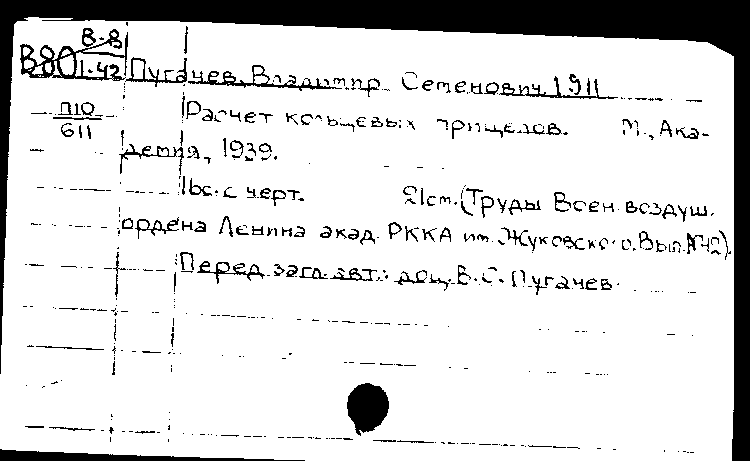 В-8
В80 1-42 Пугачев, Владимир Семенович. 1911
П10
611
Расчет кольцевых прицелов. М., Ака-
демия, 1939.
16с. с черт. 21см. (Труды Воен. воздуш.
ордена Ленина акад. РККА им. Жуковского. Вып. №42).
Перед загл. авт.: доц. В. С. Пугачев.